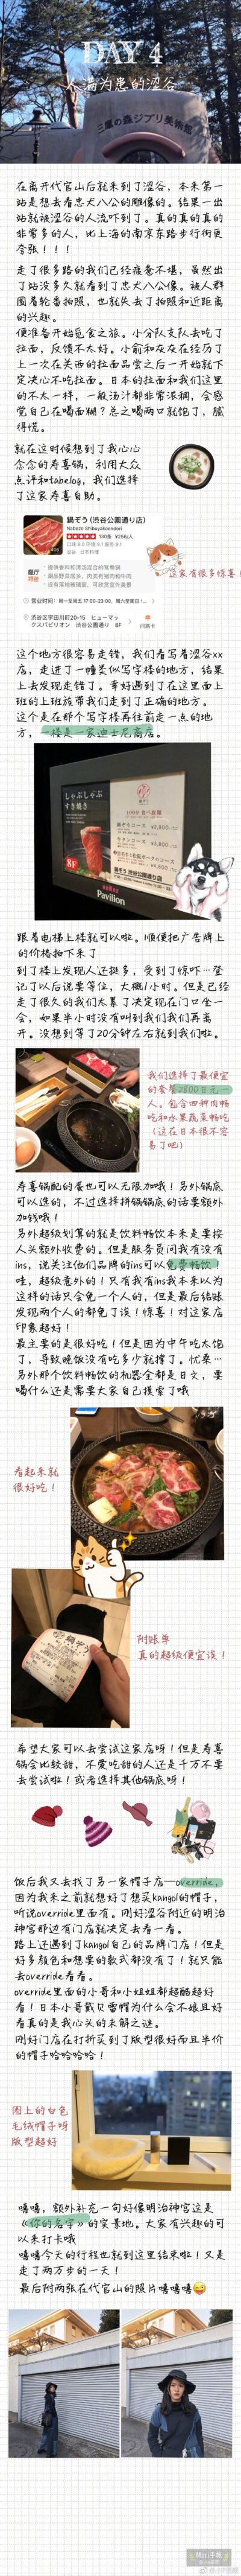 DAY 4
人满为患的涩谷
三鷹の森ジブリ美術館
在离开代官山后就来到了涩谷，本来第一
站是想去看忠犬八公的雕像的。结果一出
站就被涩谷的人流吓到了。真的真的真的
非常多的人，比上海的南京东路步行街更
夸张！！！
走了很多路的我们已经疲惫不堪，虽然出
了站没多久就看到了忠犬八公像。被人群
围着轮番拍照，也就失去了拍照和近距离
的兴趣。
便准备开始觅食之旅。小分队支队去吃了
拉面，反馈不太好。小俞和灰灰在经历了
上一次在关西的拉面品尝之后一开始就下
定决心不吃拉面。日本的拉面和我们这里
的不太一样，一般汤汁都非常浓稠，会感
觉自己在喝面糊？总之喝两口就饱了，腻
得慌。
就在这时候想到了我心心
念念的寿喜锅，利用大众
点评和tabelog，我们选择
了这家寿喜自助。
鍋ぞう(渋谷公園通り店)
nabezo Shibuyakoendori
130条 ¥266/人
日本料理
餐厅
特色
提供香料和清汤混合的鸳鸯锅
营业时间：周一至周五 17:00-23:00，周六至周日 1...
渋谷区宇田川町20-15 ヒューマッ
クスパビリオン 渋谷公園通り 8F
问路卡
这家有很多惊喜！
这个地方很容易走错，我们看写着涩谷xx
店，走进了一幢类似写字楼的地方，结果
上去发现走错了。幸好遇到了在这里面上
班的上班族带我们走到了正确的地方。
这个是在那个写字楼再往前走一点的地
方，一楼是一家迪士尼商店。
しゃぶしゃぶ
すき焼き
100分 食べ放題
8F
Pavilion
跟着电梯上楼就可以啦。顺便把广告牌上
的价格拍下来了
到了楼上发现人还挺多，受到了惊吓…登
记了以后说要等位，大概1小时。但是已经
走了很久的我们太累了决定现在门口坐一
会，如果半小时没有叫到我们我们再离
开。没想到等了20分钟左右就到我们啦。
我们选择了最便宜
的套餐2800日元一
人。包含四种肉畅
吃和水果蔬菜畅吃
（这在日本很不容
易了吧）
寿喜锅配的蛋也可以无限加哦！另外锅底
可以选的，不过选择拼锅锅底的话要额外
加钱哦！
另外超级划算的就是饮料畅饮本来是要按
人头额外收费的。但是服务员问我有没有
ins，说关注他们品牌的ins可以免费畅饮！
哇，超级意外的！只有我有ins我本来以为
这样的话只会免一个人的，但是最后结账
发现两个人的都免了诶！惊喜！对这家店
印象超好！
最主要的是很好吃！但是因为中午吃太饱
了，导致晚饭没有吃多少就撑了。忧桑…
另外那个饮料畅饮的机器全都是日文，要
喝什么还是需要大家自己摸索了哦
看起来就
很好吃！
附账单
真的超级便宜诶！
希望大家可以去尝试这家店呀！但是寿喜
锅会比较甜，不爱吃甜的人还是千万不要
去尝试啦！或者选择其他锅底呀！
饭后我又去找了另一家帽子店—override，
因为我来之前就想好了想买kangol的帽子，
听说override里面有。刚好涩谷附近的明治
神宫那边有门店就决定去看一看。
路上还遇到了kangol自己的品牌门店！但是
好多颜色和想要的款式都没有了！就只能
去override看看。
override里面的小哥和小姐姐都超酷超好
看！日本小哥戴贝雷帽为什么会不娘且好
看真的是我心头的未解之谜。
刚好门店在打折买到了版型很好而且半价
的帽子哈哈哈哈！
图上的白色
毛绒帽子呀
版型超好
嘻嘻，额外补充一句好像明治神宫这是
《你的名字》的实景地。大家有兴趣的可
以来打卡哦
嘻嘻今天的行程也就到这里结束啦！又是
走了两万步的一天！
最后附两张在代官山的照片嘻嘻嘻